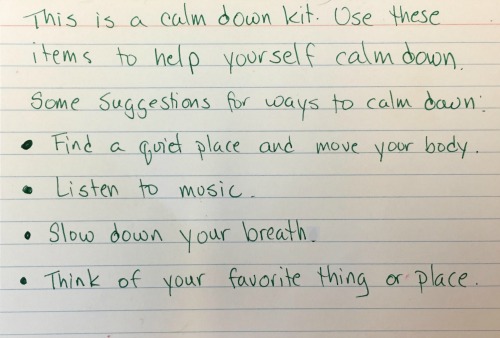 This is a calm down kit. Use these
items to help yourself calm down.
Some Suggestions for ways to calm down:
• Find a quiet place and move your body.
• Listen to music.
• Slow down your breath.
• Think of your favorite thing or place.